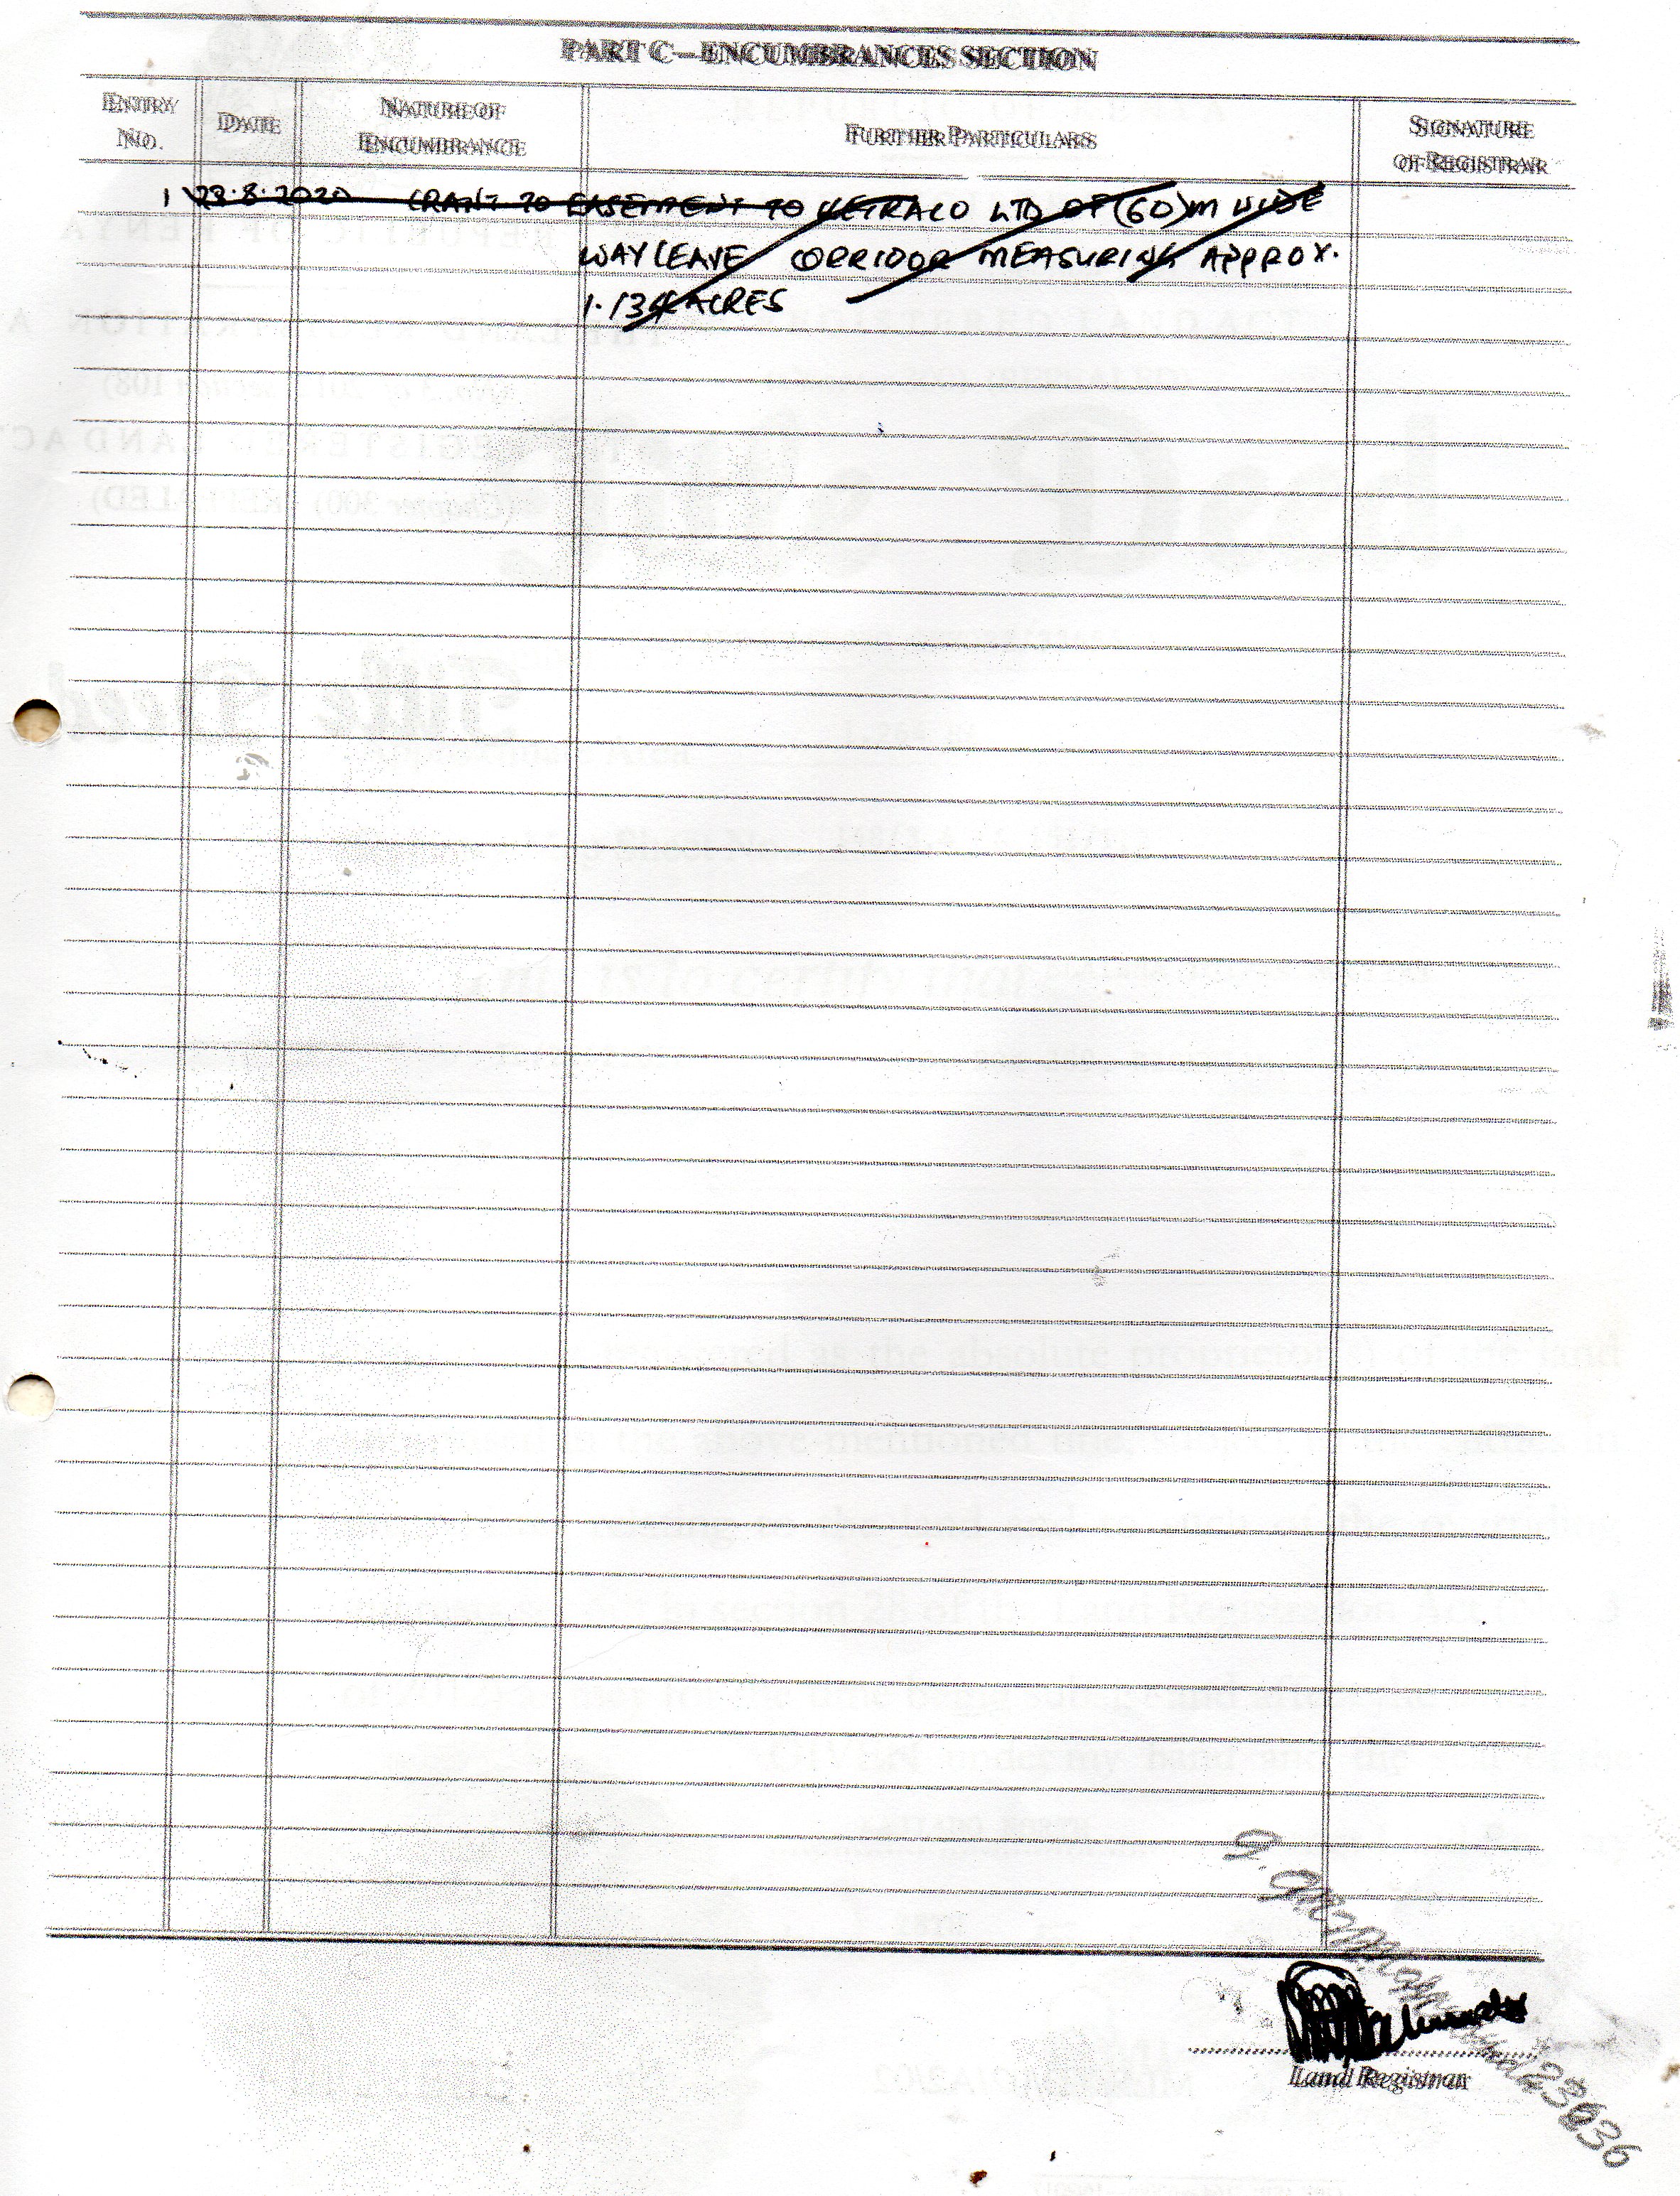 PART C—ENCUMBRANCES SECTION
ENTRY NO.
DATE
NATURE OF ENCUMBRANCE
FURTHER PARTICULARS
SIGNATURE OF REGISTRAR
1 28.8.2020 GRANT TO EASEMENT TO KETRACO LTD OF (60)M WIDE
WAYLEAVE CORRIDOR MEASURING APPROX.
1.134 ACRES
Land Registrar